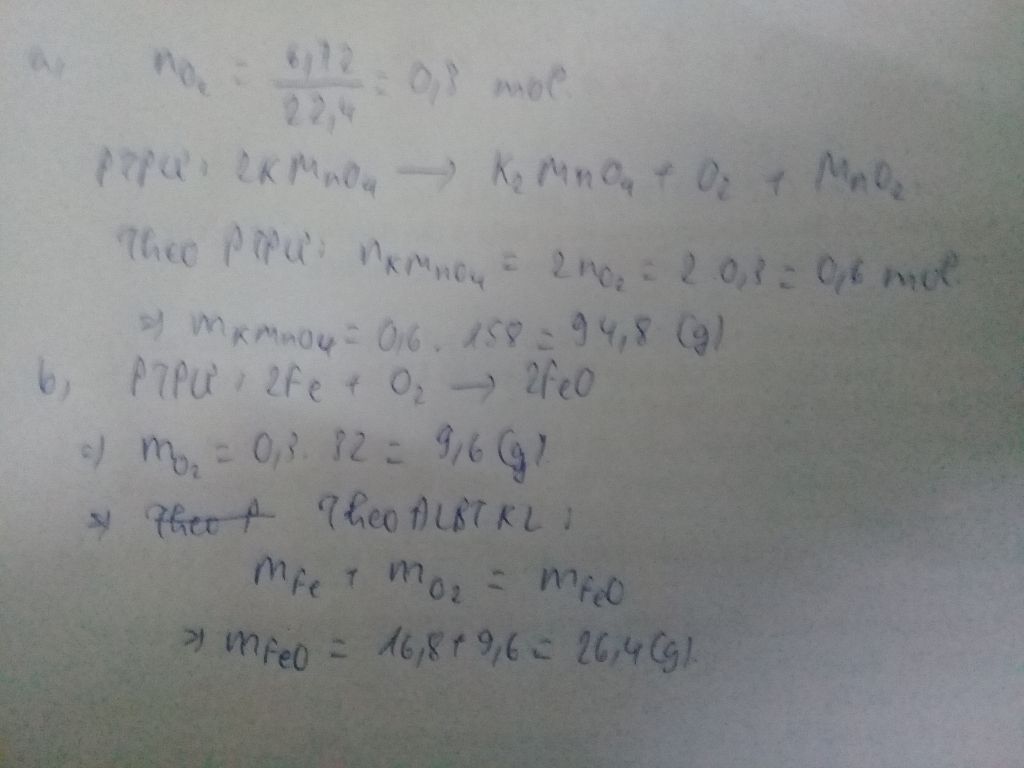 a, nO₂ = 6,72/22,4 = 0,3 mol.
PTPƯ: 2KMnO₄ → K₂MnO₄ + O₂ + MnO₂.
Theo PTPƯ: nKMnO₄ = 2nO₂ = 2.0,3 = 0,6 mol.
=> mKMnO₄ = 0,6 . 158 = 94,8 (g)
b, PTPƯ: 2Fe + O₂ → 2FeO
=> mO₂ = 0,3 . 32 = 9,6 (g)
=> Theo ĐLBTKL:
mFe + mO₂ = mFeO
=> mFeO = 16,8 + 9,6 = 26,4 (g).